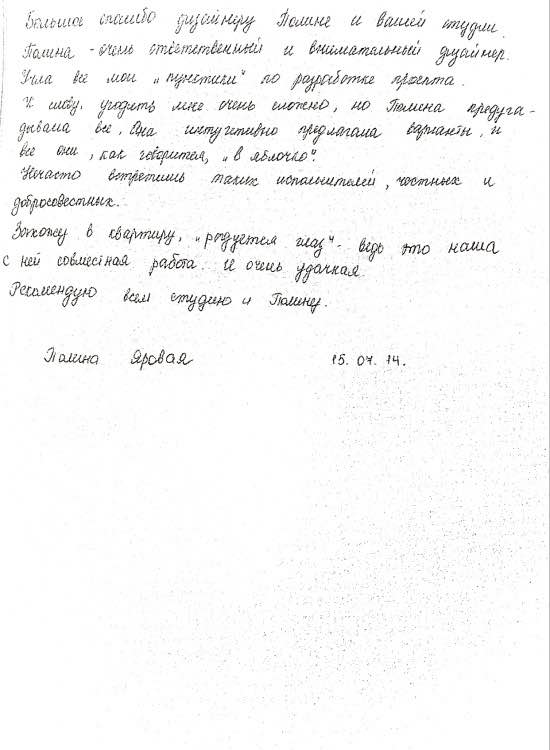 Большое спасибо дизайнеру Полине и вашей студии.
Полина - очень ответственный и внимательный дизайнер.
Учла все мои „пунктики" по разработке проекта.
К слову, угодить мне очень сложно, но Полина предуга-
дывала все. Она интуитивно предлагала варианты, и
все они, как говорится, „в яблочко".
Нечасто встретишь таких исполнителей, честных и
добросовестных.
Захожу в квартиру, „радуется глаз" - ведь это наша
с ней совместная работа. И очень удачная.
Рекомендую всем студию и Полину.
Полина Яровая 15.07.14.